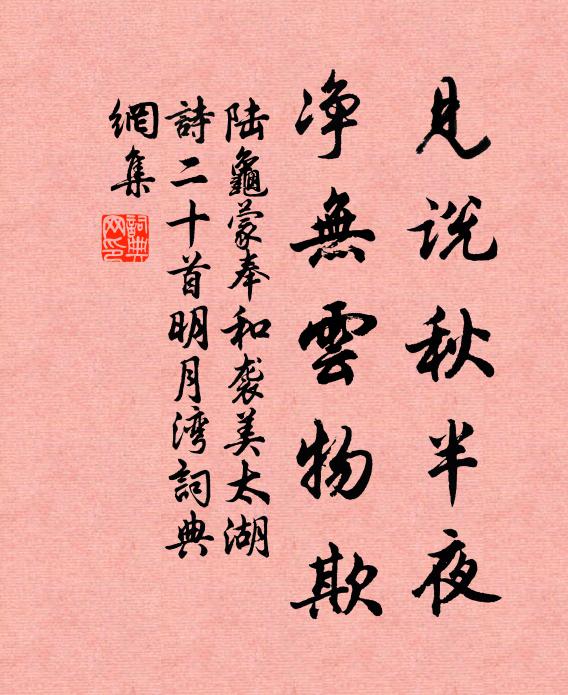 見説秋半夜
净無雲物欺
陆龜蒙奉和袭美太湖
詩二十首明月湾詞典
網集
詞典
网印